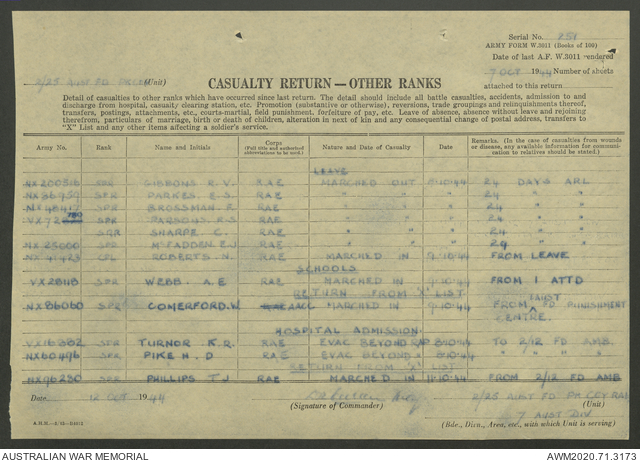 Serial No. 251
ARMY FORM W.3011 (Books of 100)
Date of last A.F. W.3011 rendered
7 OCT 1944 Number of sheets
2/25 AUST FD PK COY (Unit)
attached to this return
CASUALTY RETURN—OTHER RANKS
Detail of casualties to other ranks which have occurred since last return. The detail should include all battle casualties, accidents, admission to and
discharge from hospital, casualty clearing station, etc. Promotion (substantive or otherwise), reversions, trade groupings and relinquishments thereof,
transfers, postings, attachments, etc., courts-martial, field punishment, forfeiture of pay, etc. Leave of absence, absence without leave and rejoining
therefrom, particulars of marriage, birth or death of children, alteration in next of kin and any consequential change of postal address, transfers to
"X" List and any other items affecting a soldier's service.
Army No. Rank Name and Initials Corps (Full title and authorized abbreviations to be used.) Nature and Date of Casualty Date Remarks. (In the case of casualties from wounds or disease, any available information for communication to relatives should be stated.)
LEAVE
NX200516 SPR GIBBONS R.V. RAE MARCHED OUT 8-10-44 24 DAYS ARL
SPR PARKES E.S RAE " " " 24 " "
SPR CROSSMAN F. RAE " " " 24 " "
VX72 780 SPR PARSONS R S RAE " " " 24 " "
SPR SHARPE C. RAE " " " 24 " "
NX25000 SPR McFADDEN E.J RAE " " " 24 " "
NX41423 CPL ROBERTS N. RAE MARCHED IN 9-10-44 FROM LEAVE
SCHOOLS
SPR WEBB A.E RAE MARCHED IN 9-10-44 FROM 1 ATTD
RETURN FROM 'X' LIST
NX86060 SPR COMERFORD.W. AACC MARCHED IN 9-10-44 FROM AUST FD PUNISHMENT
CENTRE.
HOSPITAL ADMISSION.
VX16382 SPR TURNOR K.R. RAE EVAC BEYOND RAP 8-10-44 TO 2/12 FD AMB.
NX60496 SPR PIKE H.D RAE EVAC BEYOND " 8-10-44 " " " "
RETURN FROM 'X' LIST
NX96230 SPR PHILLIPS T J RAE MARCHED IN 11-10-44 FROM 2/12 FD AMB
Date 12 OCT 1944
(Signature of Commander)
2/25 AUST FD PK COY RAE
(Unit)
7 AUST DIV
(Bde., Divn., Area, etc., with which Unit is serving)
AUSTRALIAN WAR MEMORIAL
AWM2020.71.3173